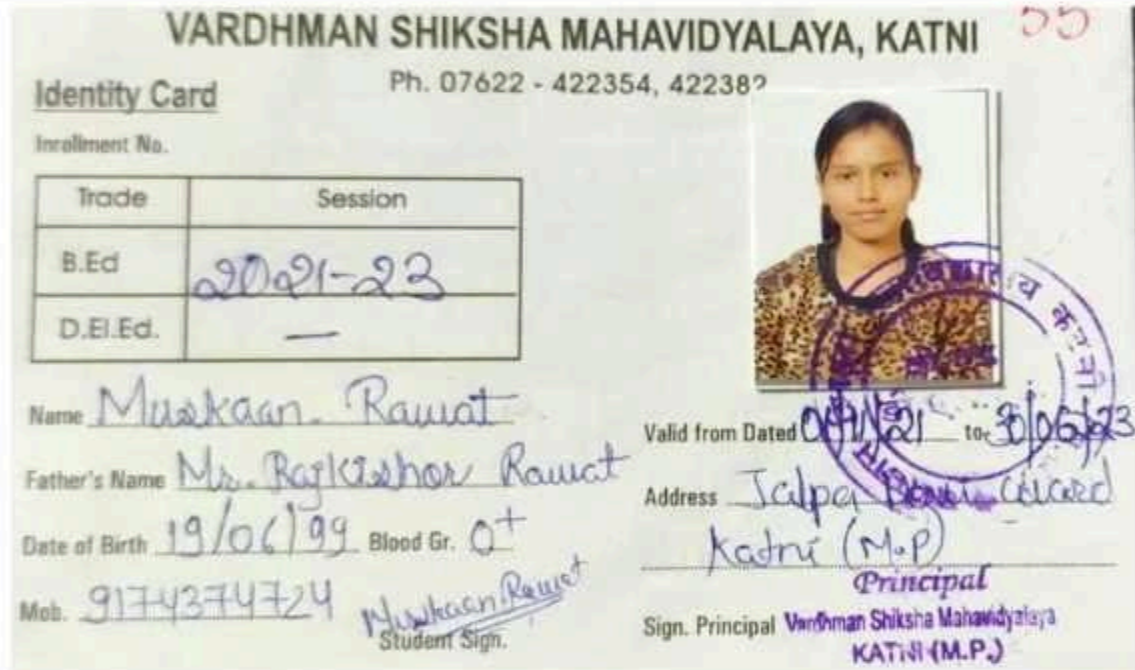 55
VARDHMAN SHIKSHA MAHAVIDYALAYA, KATNI
Ph. 07622 - 422354, 422382
Identity Card
Inrollment No.
Trade Session
B.Ed 2021-23
D.El.Ed. —
Name Muskaan Rawat
Father's Name Mr. Rajkishor Rawat
Date of Birth 19/06/99 Blood Gr. O+
Mob. 9174374724
Muskaan Rawat
Student Sign.
Valid from Dated to 06/23
Address Jalpa Ward
Katni (M.P)
Principal
Sign. Principal Vardhman Shiksha Mahavidyalaya
KATNI (M.P.)